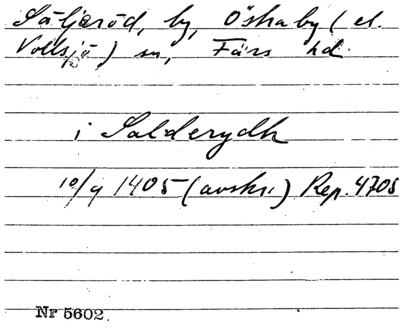 Säljeröd, by, Öskaby (el.
Vollsjö) sn, Färs hd.
i Salderydh
10/9 1405 (avskr.) Rep. 4705
Nr 5602